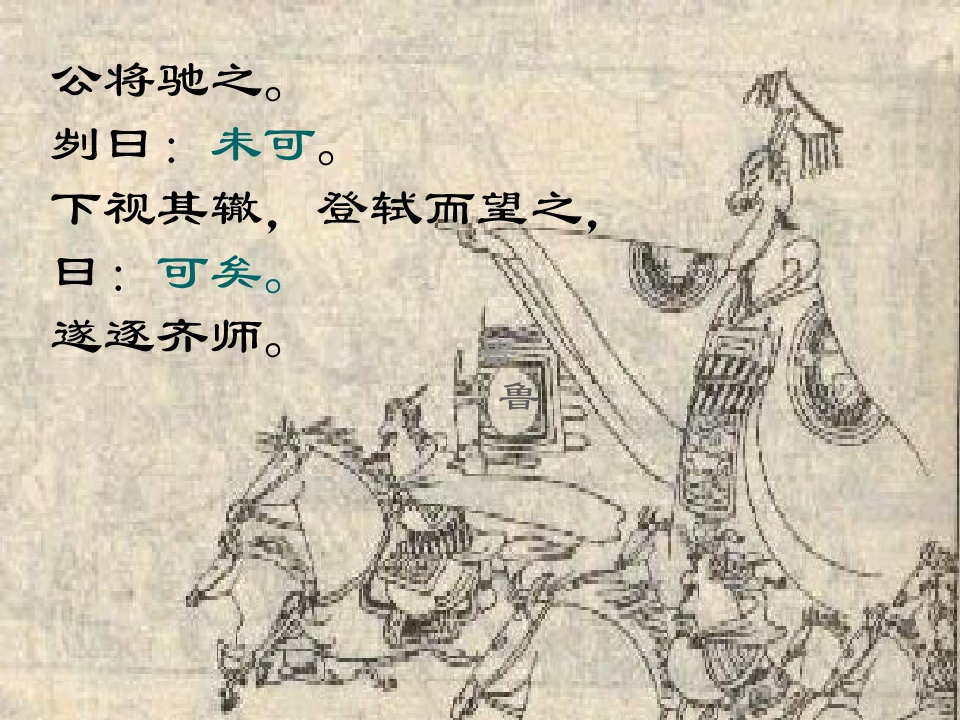 公将驰之。
刿曰：未可。
下视其辙，登轼而望之，
曰：可矣。
遂逐齐师。
鲁